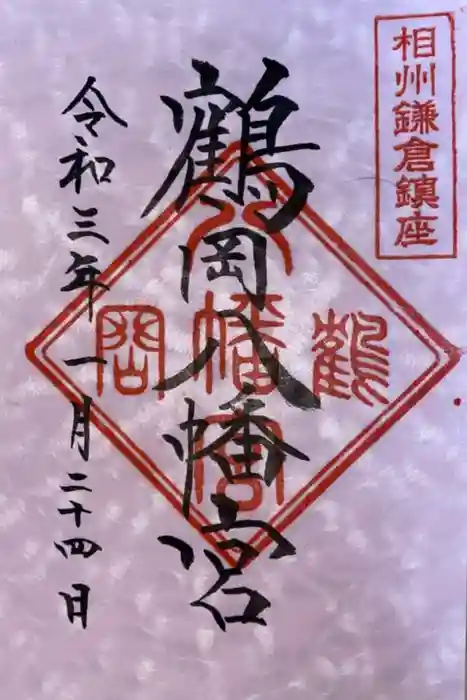 相州鎌倉鎮座
鶴岡八幡宮
鶴岡八幡宮
令和三年一月二十四日